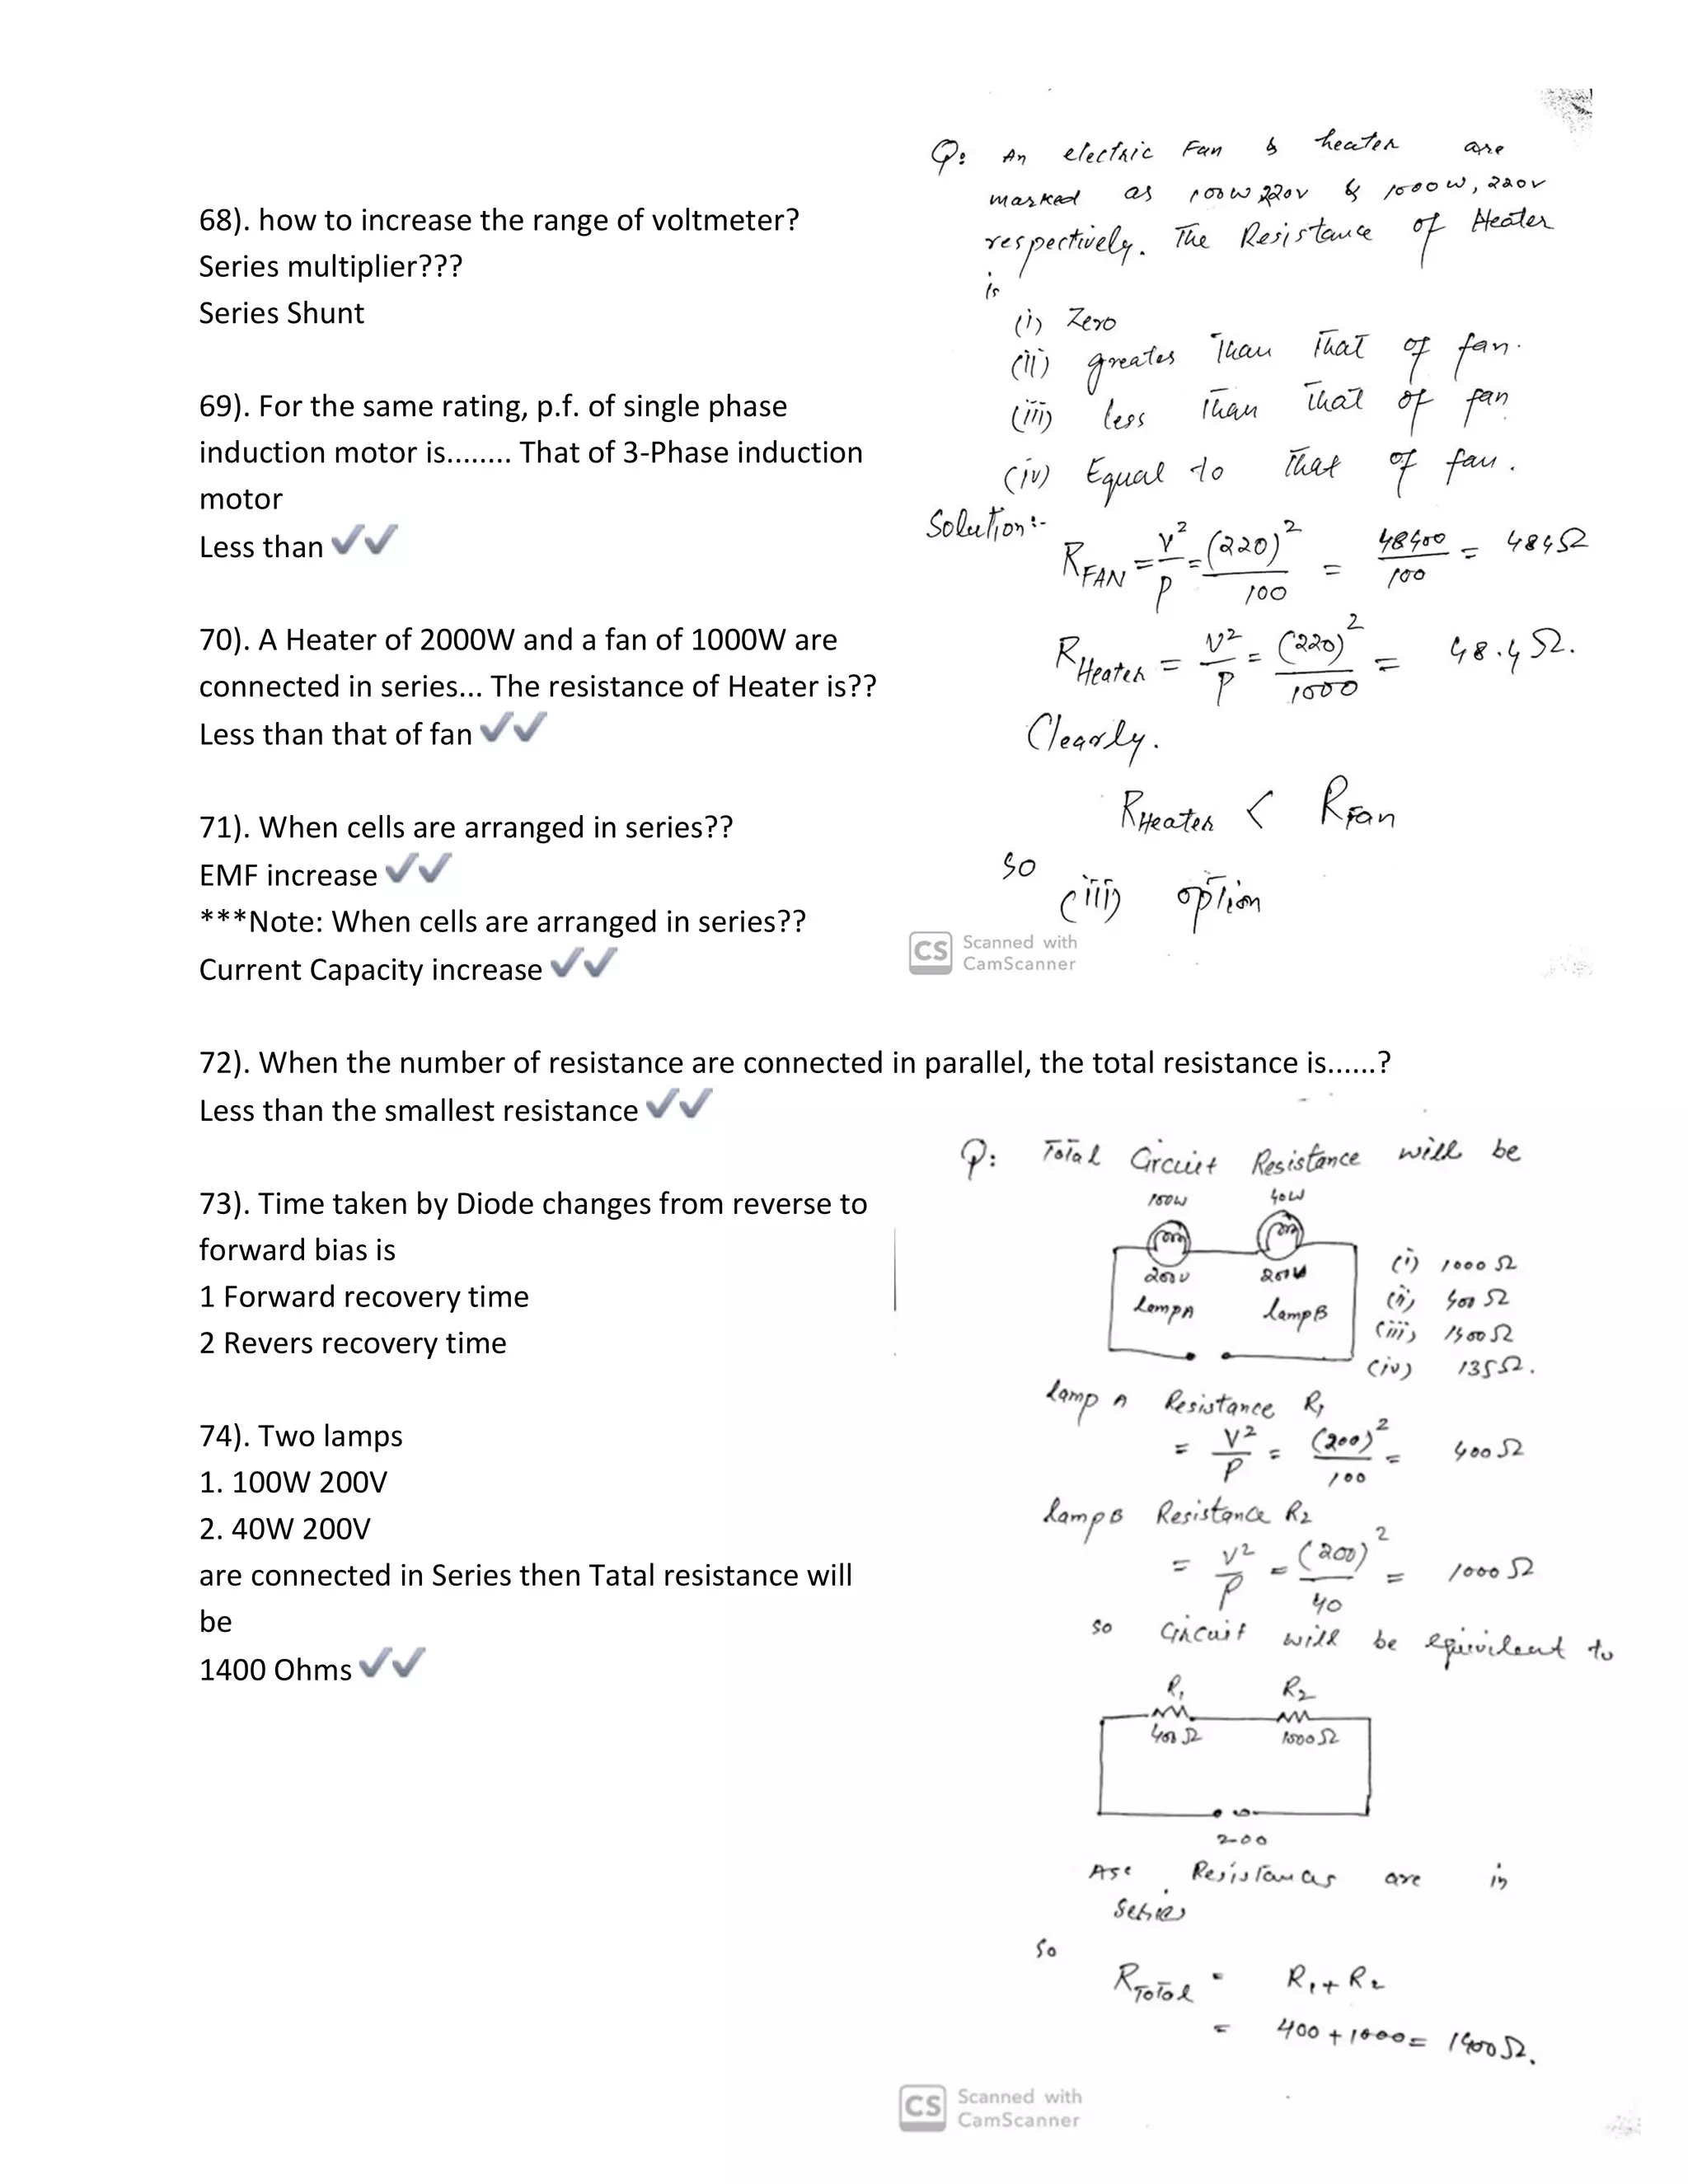 68). how to increase the range of voltmeter?
Series multiplier???
Series Shunt
69). For the same rating, p.f. of single phase
induction motor is........ That of 3-Phase induction
motor
Less than ✔✔
70). A Heater of 2000W and a fan of 1000W are
connected in series... The resistance of Heater is??
Less than that of fan ✔✔
71). When cells are arranged in series??
EMF increase ✔✔
***Note: When cells are arranged in series??
Current Capacity increase ✔✔
Q: An electric Fan & heater are
marked as 100W 220V & 1000W, 220V
respectively. The Resistance of Heater
is
(i) Zero
(ii) greates Than That of fan.
(iii) less Than That of fan
(iv) Equal to That of fan.
Solution:-
R_FAN = V²/P = (220)²/100 = 48400/100 = 484Ω
R_Heater = V²/P = (220)²/1000 = 48.4Ω.
Clearly.
R_Heater < R_Fan
so
(iii) option
CS Scanned with
CamScanner
72). When the number of resistance are connected in parallel, the total resistance is......?
Less than the smallest resistance ✔✔
73). Time taken by Diode changes from reverse to
forward bias is
1 Forward recovery time
2 Revers recovery time
74). Two lamps
1. 100W 200V
2. 40W 200V
are connected in Series then Tatal resistance will
be
1400 Ohms ✔✔
Q: Total Circuit Resistance will be
100W 40W
200V 200V
Lamp A Lamp B
(i) 1000Ω
(ii) 400Ω
(iii) 1400Ω
(iv) 135Ω.
Lamp A Resistance R₁
= V²/P = (200)²/100 = 400Ω
Lamp B Resistance R₂
= V²/P = (200)²/40 = 1000Ω
so Circuit will be equivilent to
R₁ R₂
400Ω 1000Ω
200
Resistances are in
Series
So
R_Total = R₁ + R₂
= 400 + 1000 = 1400Ω.
CS Scanned with
CamScanner